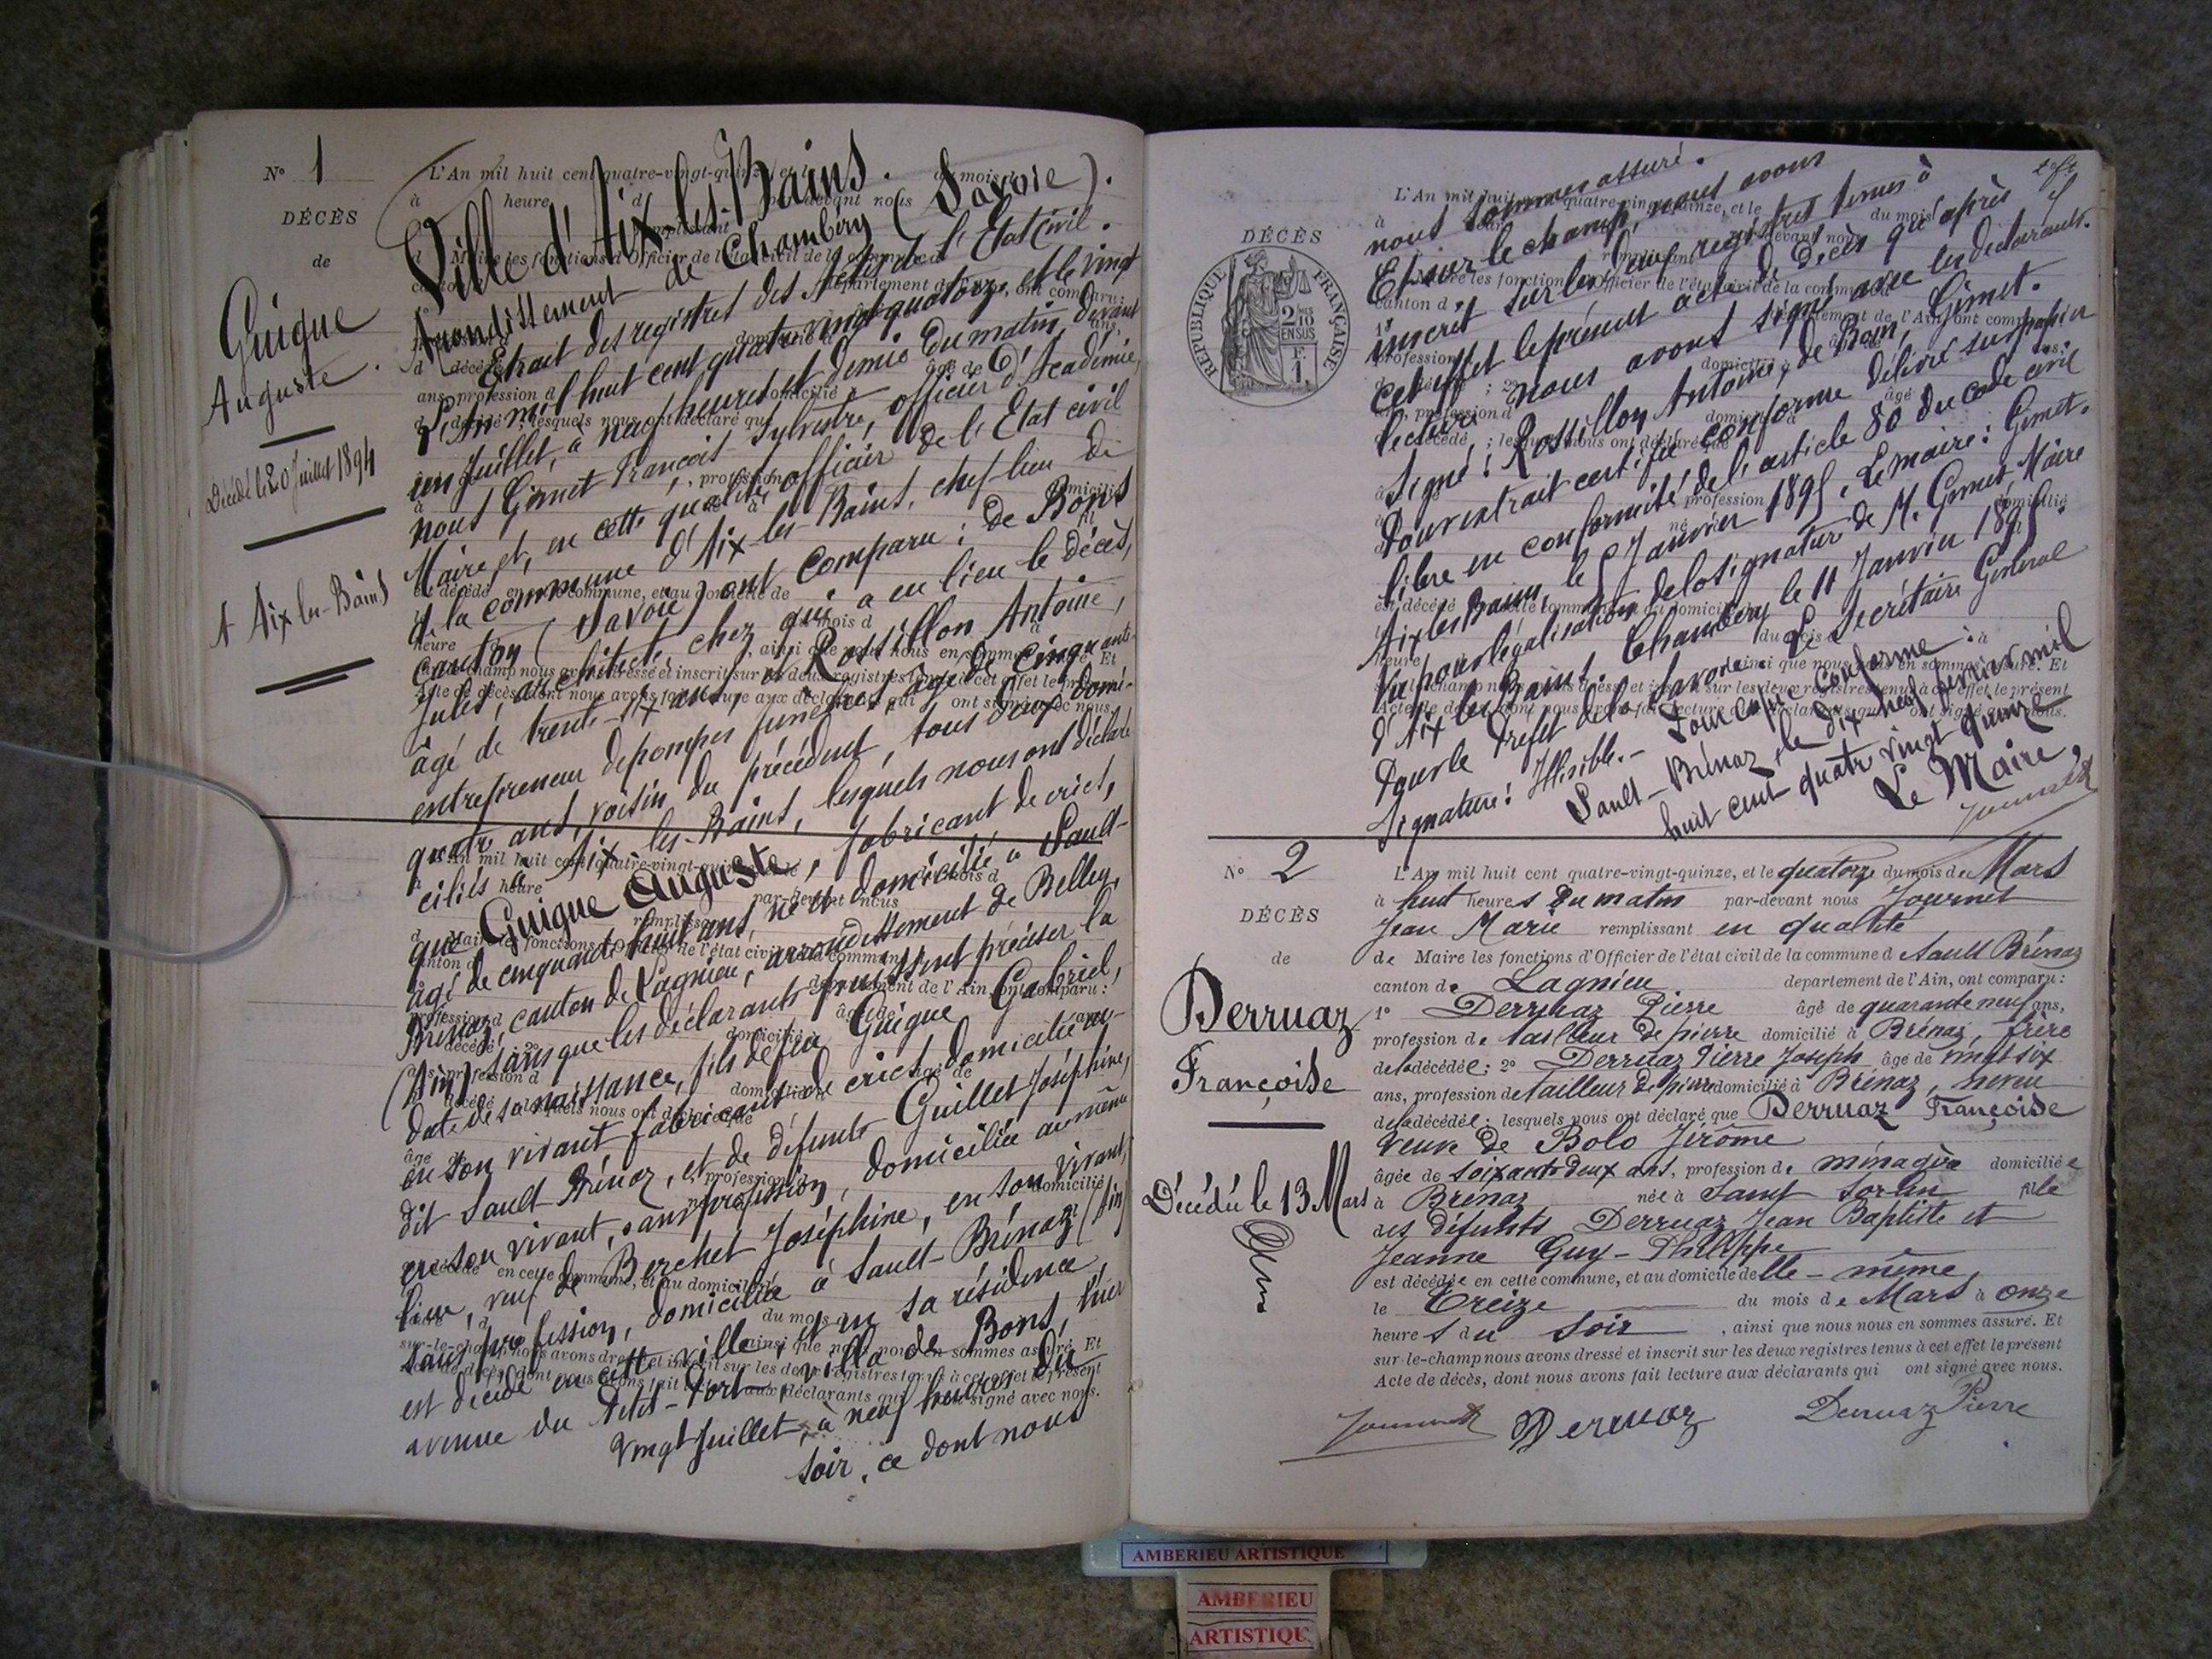 N° 1
DÉCÈS
de
Guigue
Auguste.
Décédé le 20 Juillet 1894
A Aix les-Bains
Ville d'Aix-les-Bains.
Arrondissement de Chambéry (Savoie).
Extrait des registres des Actes de l'Etat Civil.
L'An mil huit cent quatre vingt quatorze et le vingt
un Juillet, à neuf heures et demie du matin, devant
nous Gimet François Sylvestre, officier d'Académie,
Maire et, en cette qualité, officier de l'Etat civil
d la commune d'Aix-les-Bains, chef-lieu de
canton (Savoie) ont comparu : de Bons
Jules, architecte, chez qui a eu lieu le décès,
âgé de trente-six ans, et Rossillon Antoine,
entrepreneur de pompes funèbres, âgé de cinquante-
quatre ans, voisin du précédent, tous deux domi-
ciliés à Aix-les-Bains, lesquels nous ont déclaré
que Guigue Auguste, fabricant de crics,
âgé de cinquante huit ans, né et domicilié à Sault-
Brénaz, canton de Lagnieu, arrondissement de Belley,
(Ain) sans que les déclarants puissent préciser la
date de sa naissance, fils de feu Guigue Gabriel,
en son vivant fabricant de crics, domicilié au-
dit Sault Brénaz, et de défunte Guillet Joséphine,
en son vivant, sans profession, domiciliée au même
lieu, veuf de Berchet Joséphine, en son vivant,
sans profession, domiciliée à Sault-Brénaz (Ain)
est décédé en cette ville, et en sa résidence,
avenue du Petit-Port, villa de Bons, hier
vingt Juillet, à neuf heures du
soir, ce dont nous
DÉCÈS
RÉPUBLIQUE FRANÇAISE
2/10
EN SUS
nous sommes assuré.
Et sur le champ, nous avons
inscrit sur les deux registres tenus à
cet effet le présent acte de décès qu'après
lecture nous avons signé avec les déclarants.
Signé : Rossillon Antoine, de Bons, Gimet.
Pour extrait certifié conforme délivré sur papier
libre en conformité de l'article 80 du code civil
Aix les Bains, le 5 Janvier 1895. Le maire : Gimet.
Vu pour légalisation de la signature de M. Gimet Maire
d'Aix les Bains. Chambéry le 11 Janvier 1895.
Pour le Préfet de la Savoie : Le Secrétaire Général
Signature : Illisible. - Pour copie conforme :
Sault-Brénaz, le dix neuf Janvier mil
huit cent quatre vingt quinze
Le Maire,
N° 2
DÉCÈS
de
Derruaz
Françoise
Décédé le 13 Mars
L'An mil huit cent quatre-vingt-quinze, et le quatorze du mois de Mars
à huit heures du matin par-devant nous Journet
Jean Marie remplissant en qualité
de Maire les fonctions d'Officier de l'état civil de la commune d Sault Brénaz
canton de Lagnieu département de l'Ain, ont comparu :
1° Derruaz Pierre âgé de quarante neuf ans,
profession de tailleur de pierre domicilié à Brénaz, frère
de la décédée ; 2° Derruaz Pierre Joseph âgé de vingt six
ans, profession de tailleur de pierre domicilié à Brénaz, neveu
de la décédée ; lesquels nous ont déclaré que Derruaz Françoise
veuve de Bolo Jérôme
âgée de soixante deux ans, profession de ménagère domiciliée
à Brénaz née à Saint Sorlin fille
des défunts Derruaz Jean Baptiste et
Jeanne Guy-Philippe
est décédée en cette commune, et au domicile delle-même,
le Treize du mois de Mars à onze
heures du soir, ainsi que nous nous en sommes assuré. Et
sur-le-champ nous avons dressé et inscrit sur les deux registres tenus à cet effet le présent
Acte de décès, dont nous avons fait lecture aux déclarants qui ont signé avec nous.
Derruaz Derruaz Pierre
AMBERIEU ARTISTIQUE
AMBERIEU
ARTISTIQU